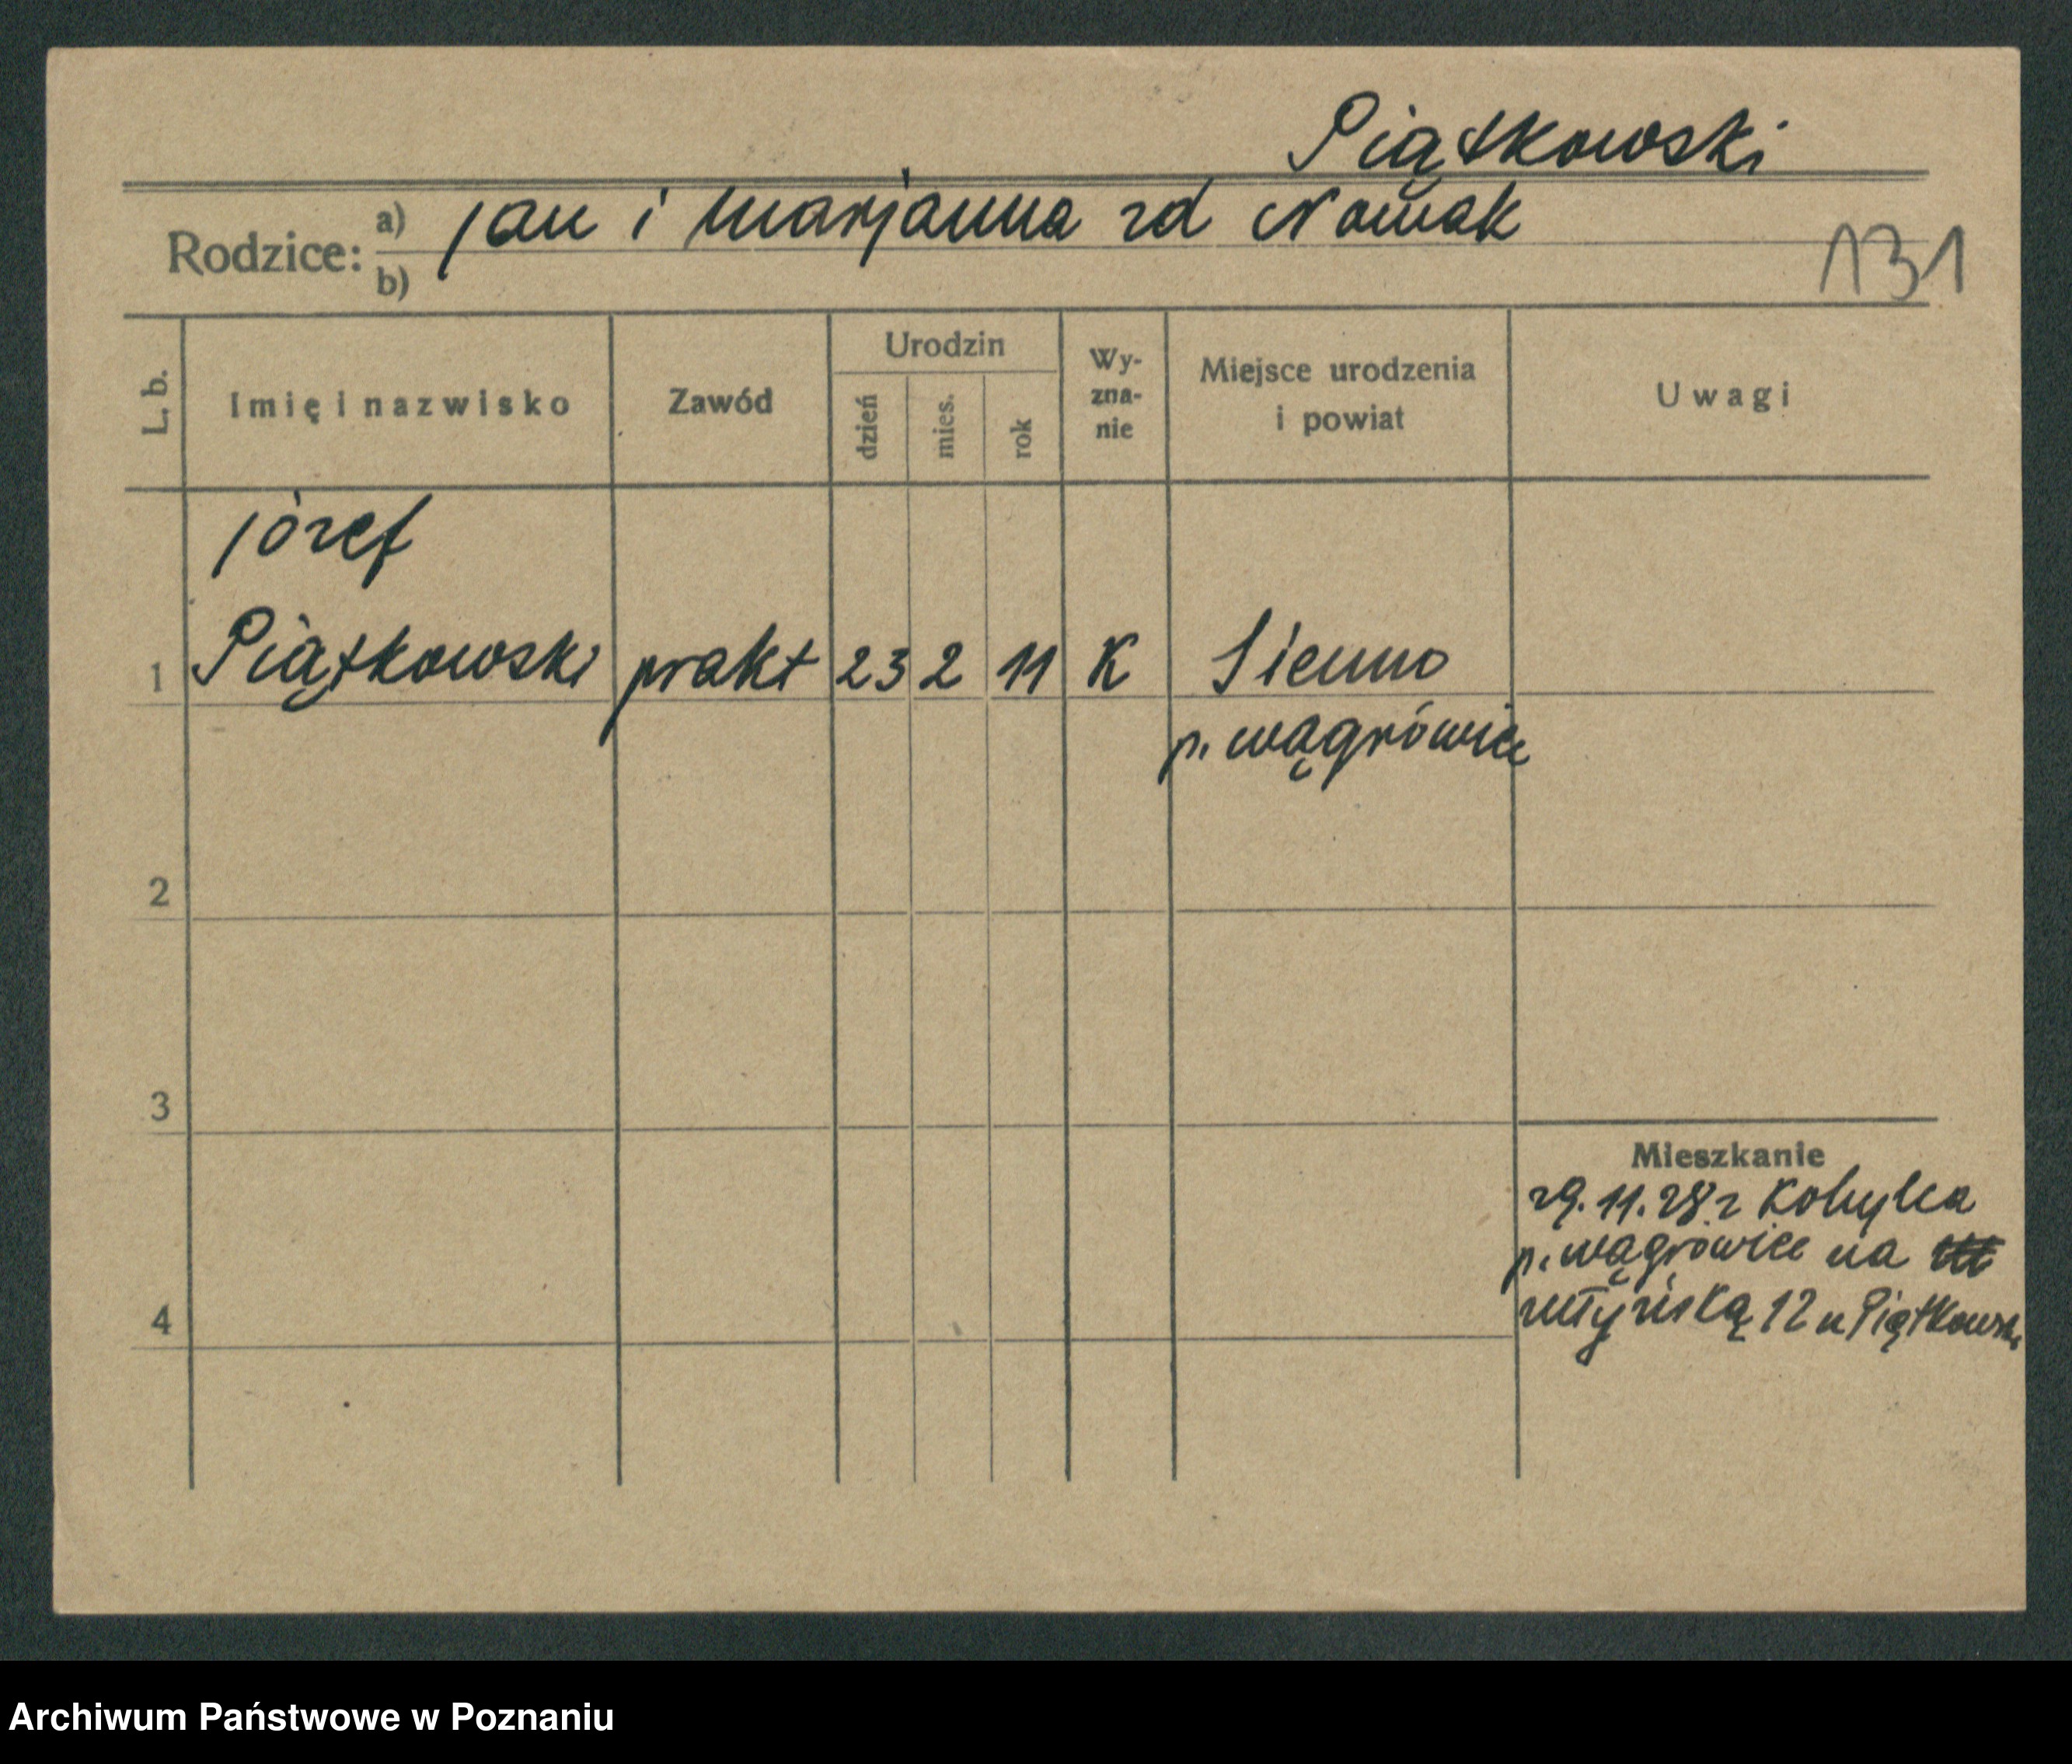 Piątkowski
Rodzice: a) Jan i Marjanna zd Nowak
b)
131
L. b.
Imię i nazwisko
Zawód
Urodzin
dzień
mies.
rok
Wy-
zna-
nie
Miejsce urodzenia
i powiat
Uwagi
Józef
1 Piątkowski prakt 23 2 11 K Sienno
p. wągrówiec
2
3
Mieszkanie
29.11.28 z Kobylca
p. wągrowiec na
4 młyńską 12 u Piątkowski
Archiwum Państwowe w Poznaniu